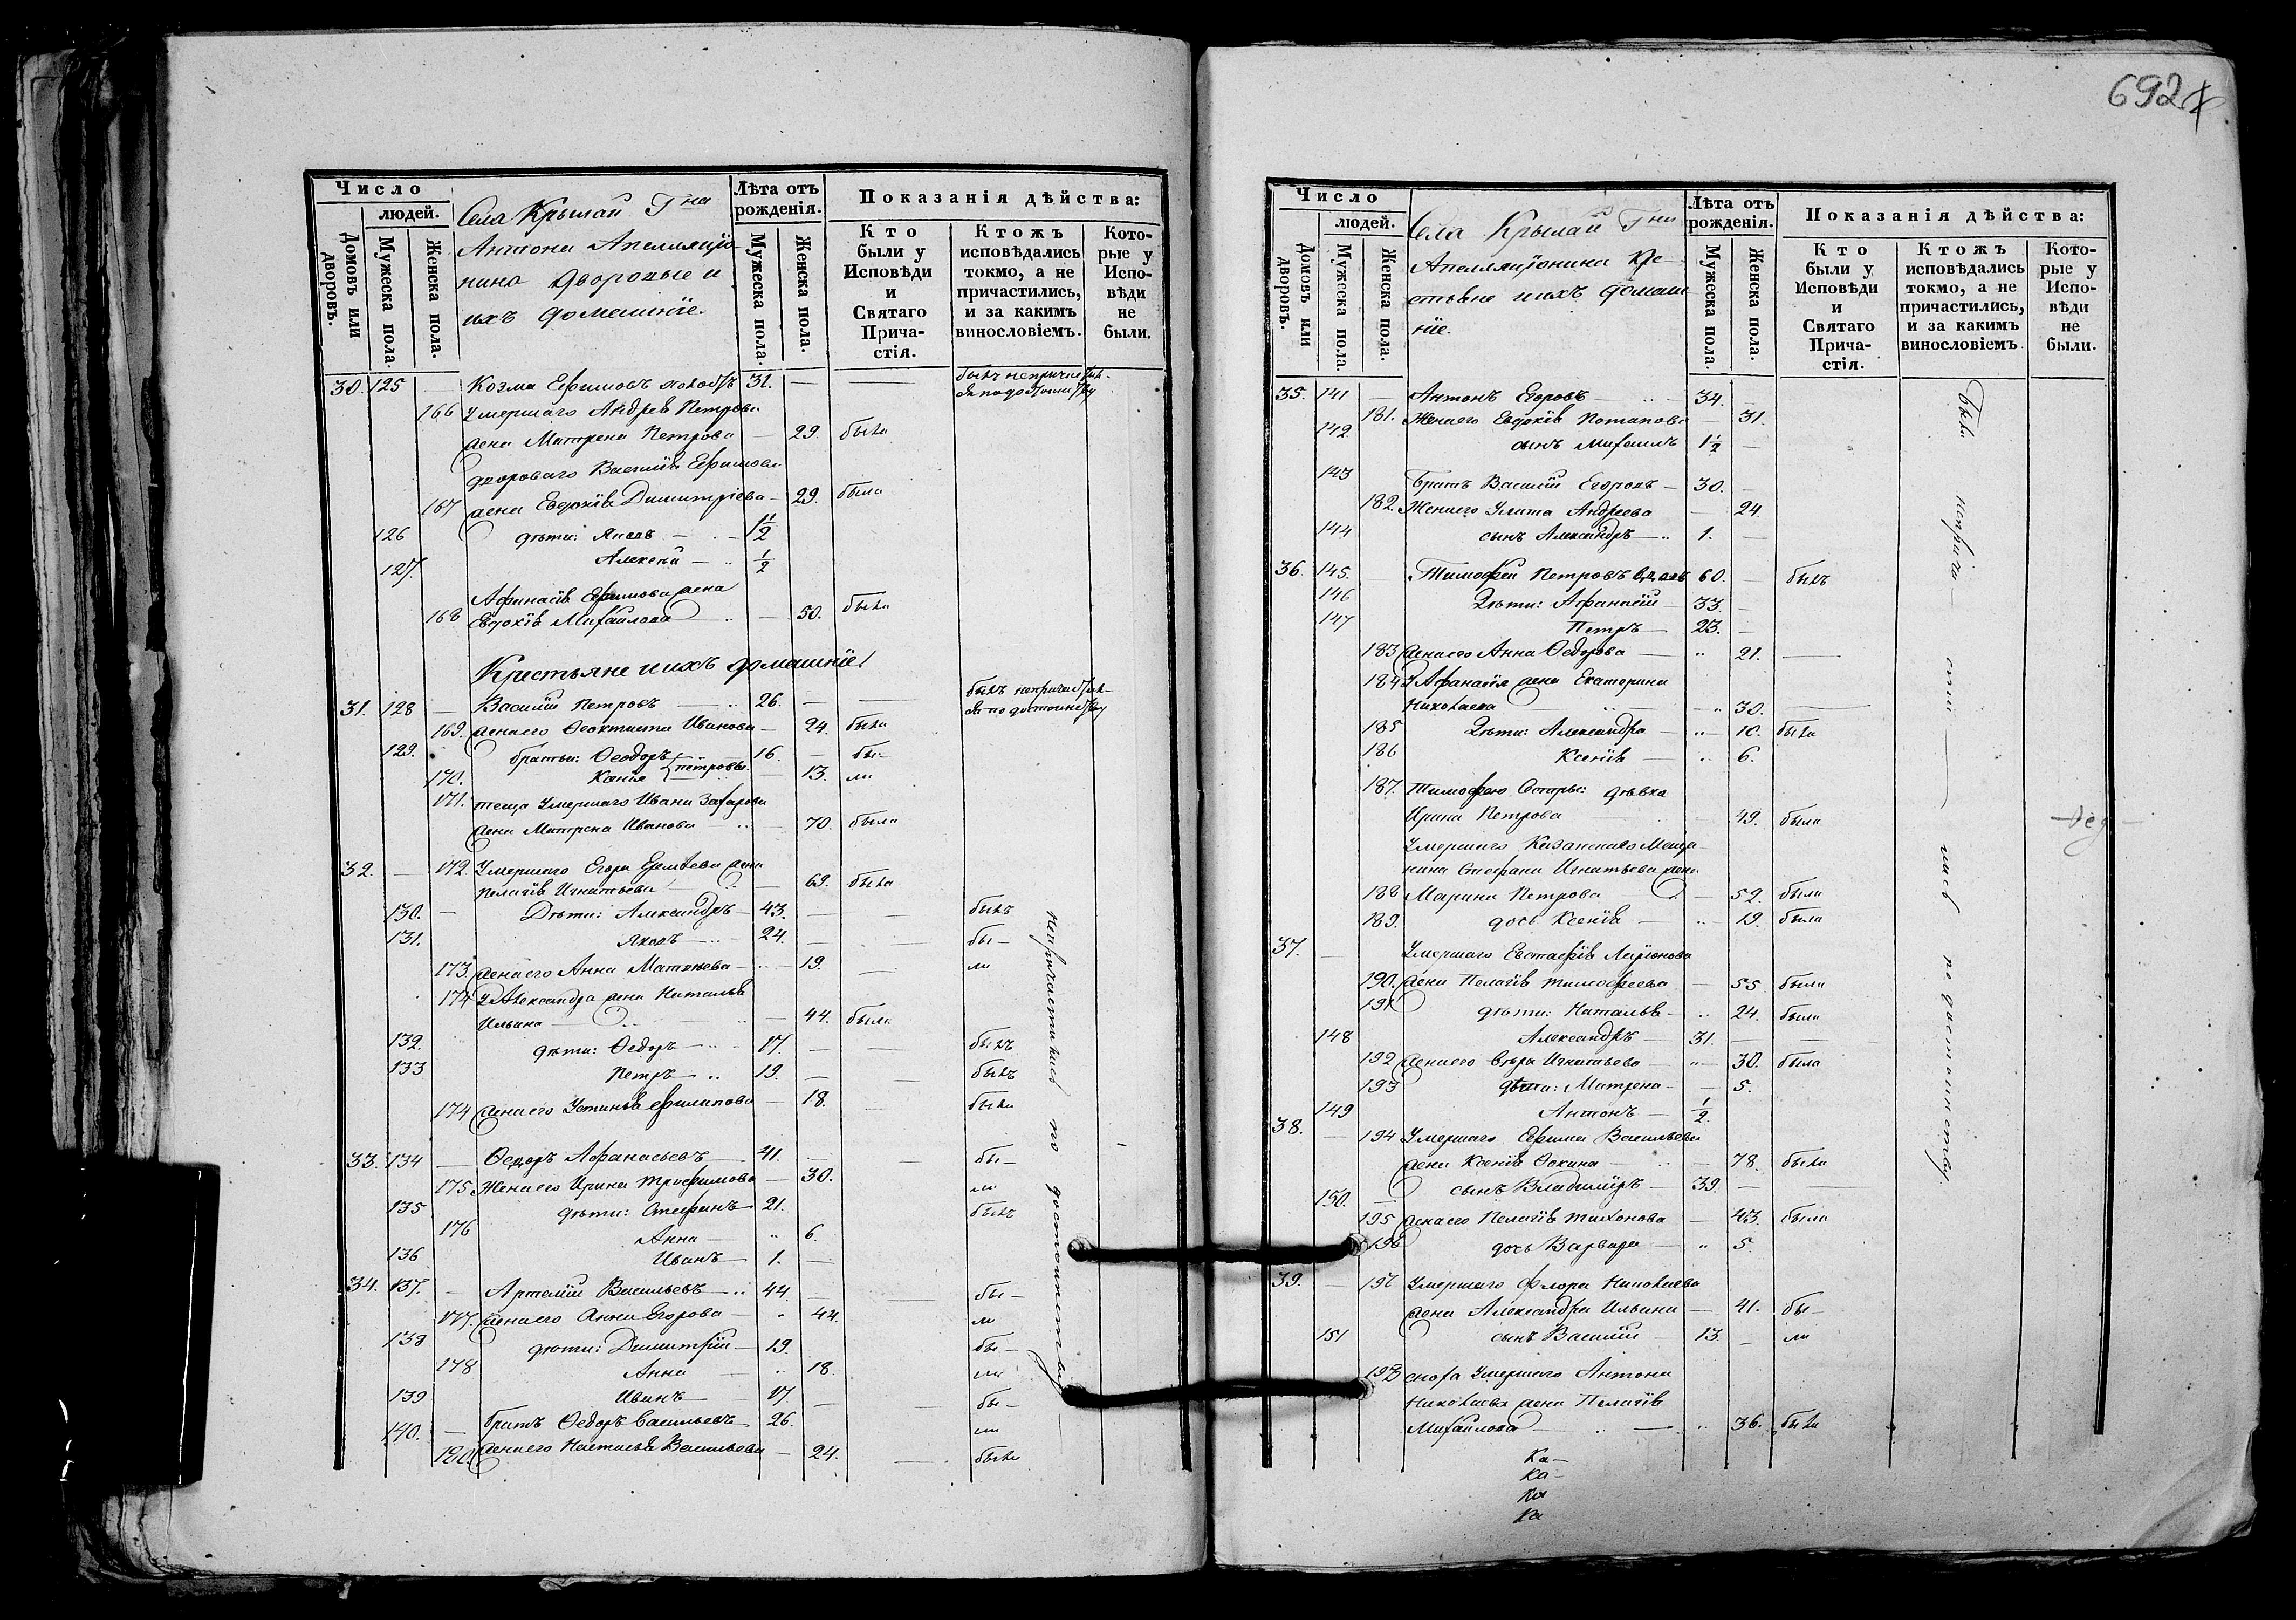 692
Число
людей.
Домовъ или дворовъ.
Мужеска пола.
Женска пола.
Села Крылай Г на
Антона Апеллиціо
нина дворовые и
ихъ домашніе.
Лѣта отъ рожденія.
Мужеска пола.
Женска пола.
Показанія дѣйства:
Кто были у Исповѣди и Святаго Прича-стія.
Ктожъ исповѣдались токмо, а не причастились, и за какимъ винословіемъ.
Кото-рые у Испо-вѣди не были.
30. 125 — Козма Ефимовъ 31. — —
166 Умершаго Андрея Петрова
жена Матрена Петрова — 29. была
двороваго Василія Ефимова
167 жена Евдокія Димитріева — 29. была
126 дѣти: Яковъ — 1 1/2
127. Алексѣй — 1/2
Афанасія Ефимова жена
168 Евдокія Михайлова — 50. была
Крестьяне и ихъ домашніе
31. 128 — Василій Петровъ — 26. — —
169. жена его Феоктиста Иванова — 24. была
129. братья: Феодоръ 16. — бы-
170. Ксенія Петровы — 13. ли
171. теща умершаго Ивана Захарова
жена Матрена Иванова — 70. была
32. — 172. Умершаго Егора Еремѣева жена
Пелагія Игнатьева — 69. была
130. — Дѣти: Александръ — 43. — — былъ
131. Яковъ — 24. — — бы-
173. жена его Анна Матвѣева — 19. — ли
174 У Александра жена Наталья
Ильина — 44. была
132. дѣти: Ѳедоръ — 17. — — былъ
133 Петръ — 19. — — былъ
174 жена его Устинья Филипова — 18. — была
33. 134 — Ѳедоръ Афанасьевъ — 41. — — бы-
175 Жена его Ирина Трофимова — 30. ли
135 дѣти: Стефанъ 21. былъ
176 Анна — 6.
136 Иванъ — 1. —
34. 137. — Артемій Васильевъ — 44. — — бы-
177. жена его Анна Егорова — 44. ли
138 дѣти: Димитрій — 19. бы-
178 Анна — 18. ли
139 Иванъ — 17. — — бы-
140. — братъ Ѳедоръ Васильевъ 26. ли
180. жена его Настасья Васильева — 24. — была
непричастились по достоинству
Число
людей.
Домовъ или дворовъ.
Мужеска пола.
Женска пола.
Села Крылай Г ни
Апелляціонина кре-
стьяне и ихъ домаш
ніе.
Лѣта отъ рожденія.
Мужеска пола.
Женска пола.
Показанія дѣйства:
Кто были у Исповѣди и Святаго Прича-стія.
Ктожъ исповѣдались токмо, а не причастились, и за какимъ винословіемъ.
Кото-рые у Испо-вѣди не были.
35. 141 — Антонъ Егоровъ — 34. —
181. Жена его Евдокія Потапова — 31.
142. сынъ Михаилъ 1 1/2 —
143 братъ Василій Егоровъ — 30. —
182. Жена его Улита Андреева — 24.
144 сынъ Александръ — 1. —
36. 145. — Тимофей Петровъ вдовъ 60. — былъ
146 Дѣти: Афанасій — 33. —
147 Петръ — 23. —
183 жена его Анна Ѳедорова — 21. —
184 У Афанасія жена Екатерина
Николаева — 30. —
185 Дѣти: Александра — 10. была
186 Ксенія — 6.
187. Тимофею Сестры: дѣвка
Ирина Петрова 49. была
Умершаго Казанскаго Меща-
нина Стефана Игнатьева жена
188 Марина Петрова — 52. была
189. дочь Ксенія — 19. была
37. — Умершаго Евстафія Ларіонова
190. жена Пелагія Тимофеева — 55. была
191 дѣти: Наталья — 24. была
148 Александръ — 31. — —
192 жена его Вѣра Игнатьева — 30. была
193 дѣти: Матрена — 5.
149 Антонъ — 1/2.
38. — 194 Умершаго Ефима Васильева
жена Ксенія Ѳокина — 78. была
150. — сынъ Владиміръ — 39. — —
195 жена его Пелагія Тихонова — 43. была
196 дочь Варвара — 5.
39. — 197 Умершаго Флора Николаева
жена Александра Ильина — 41. бы-
151 сынъ Василій — 13. — ли
198 сноха умершаго Антона
Николаева жена Пелагія
Михайлова — 36. была
Были непричастились по достоинству.
Ка-
Ка-
Ка
Ка